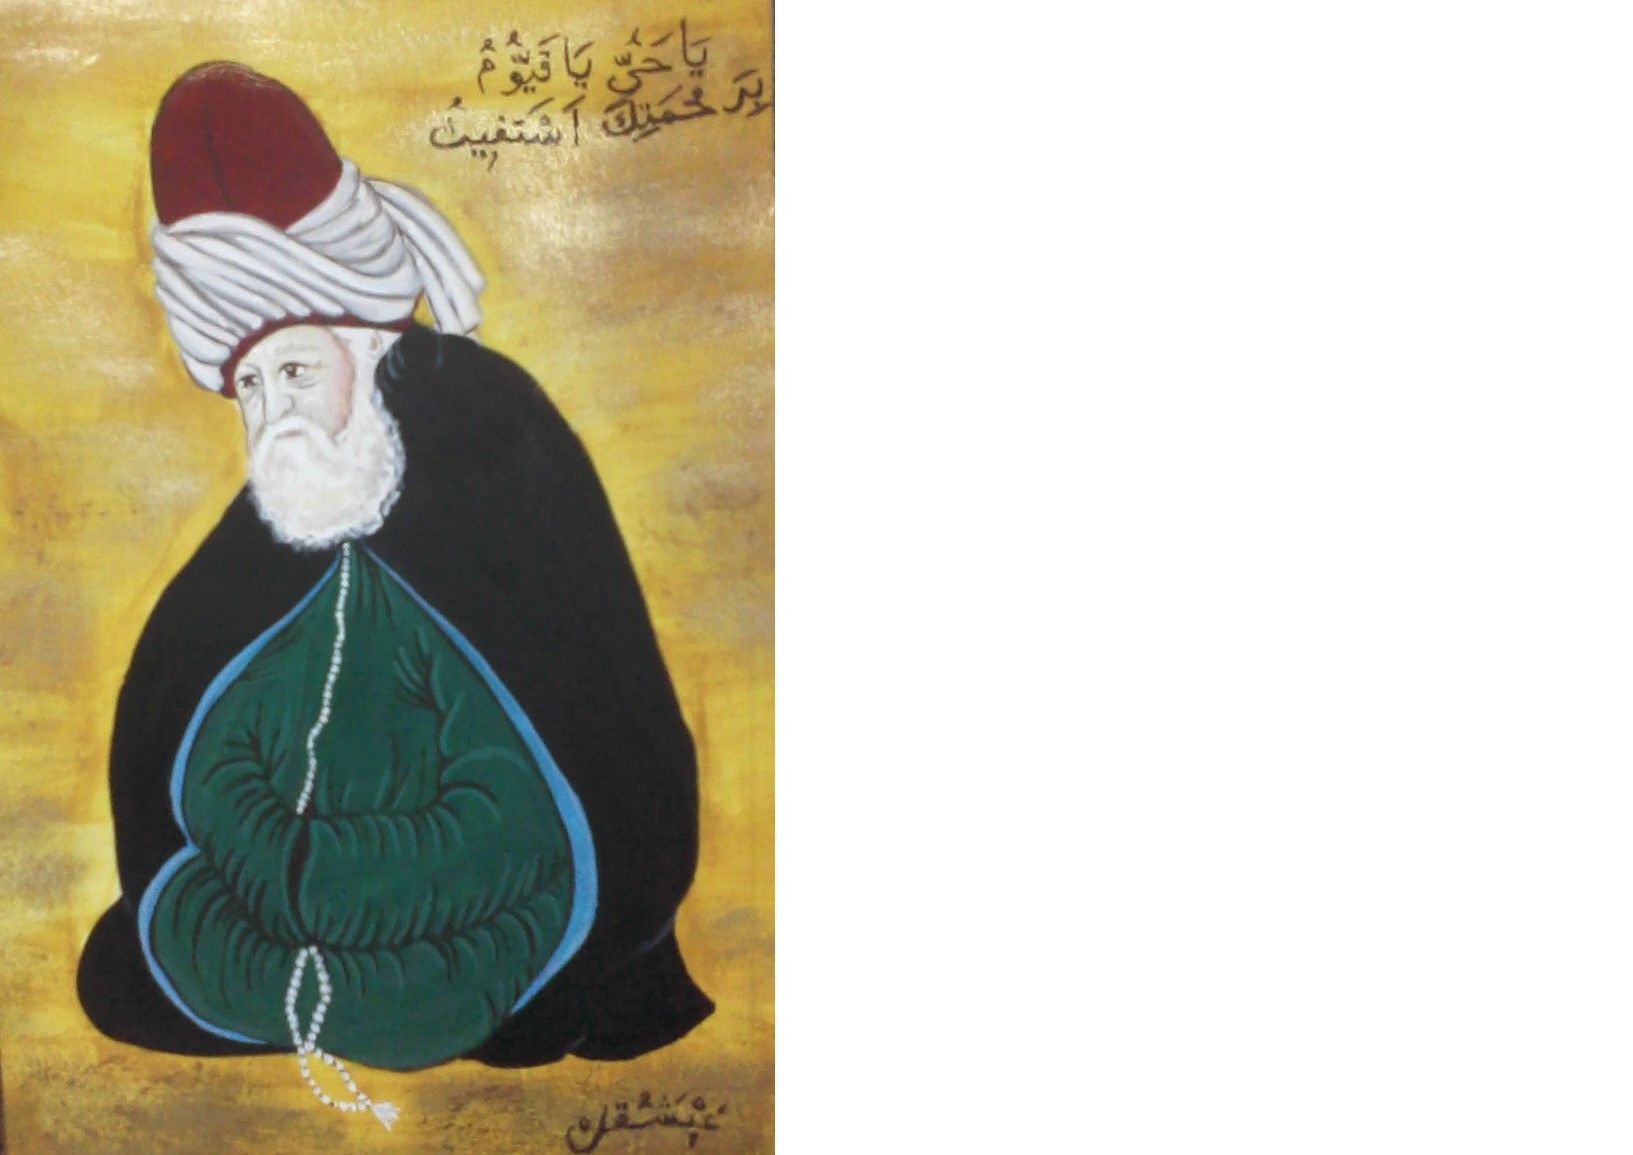 يَا حَيُّ يَا قَيُّوْمُ
بِرَحْمَتِكَ اَسْتَغِيثُ